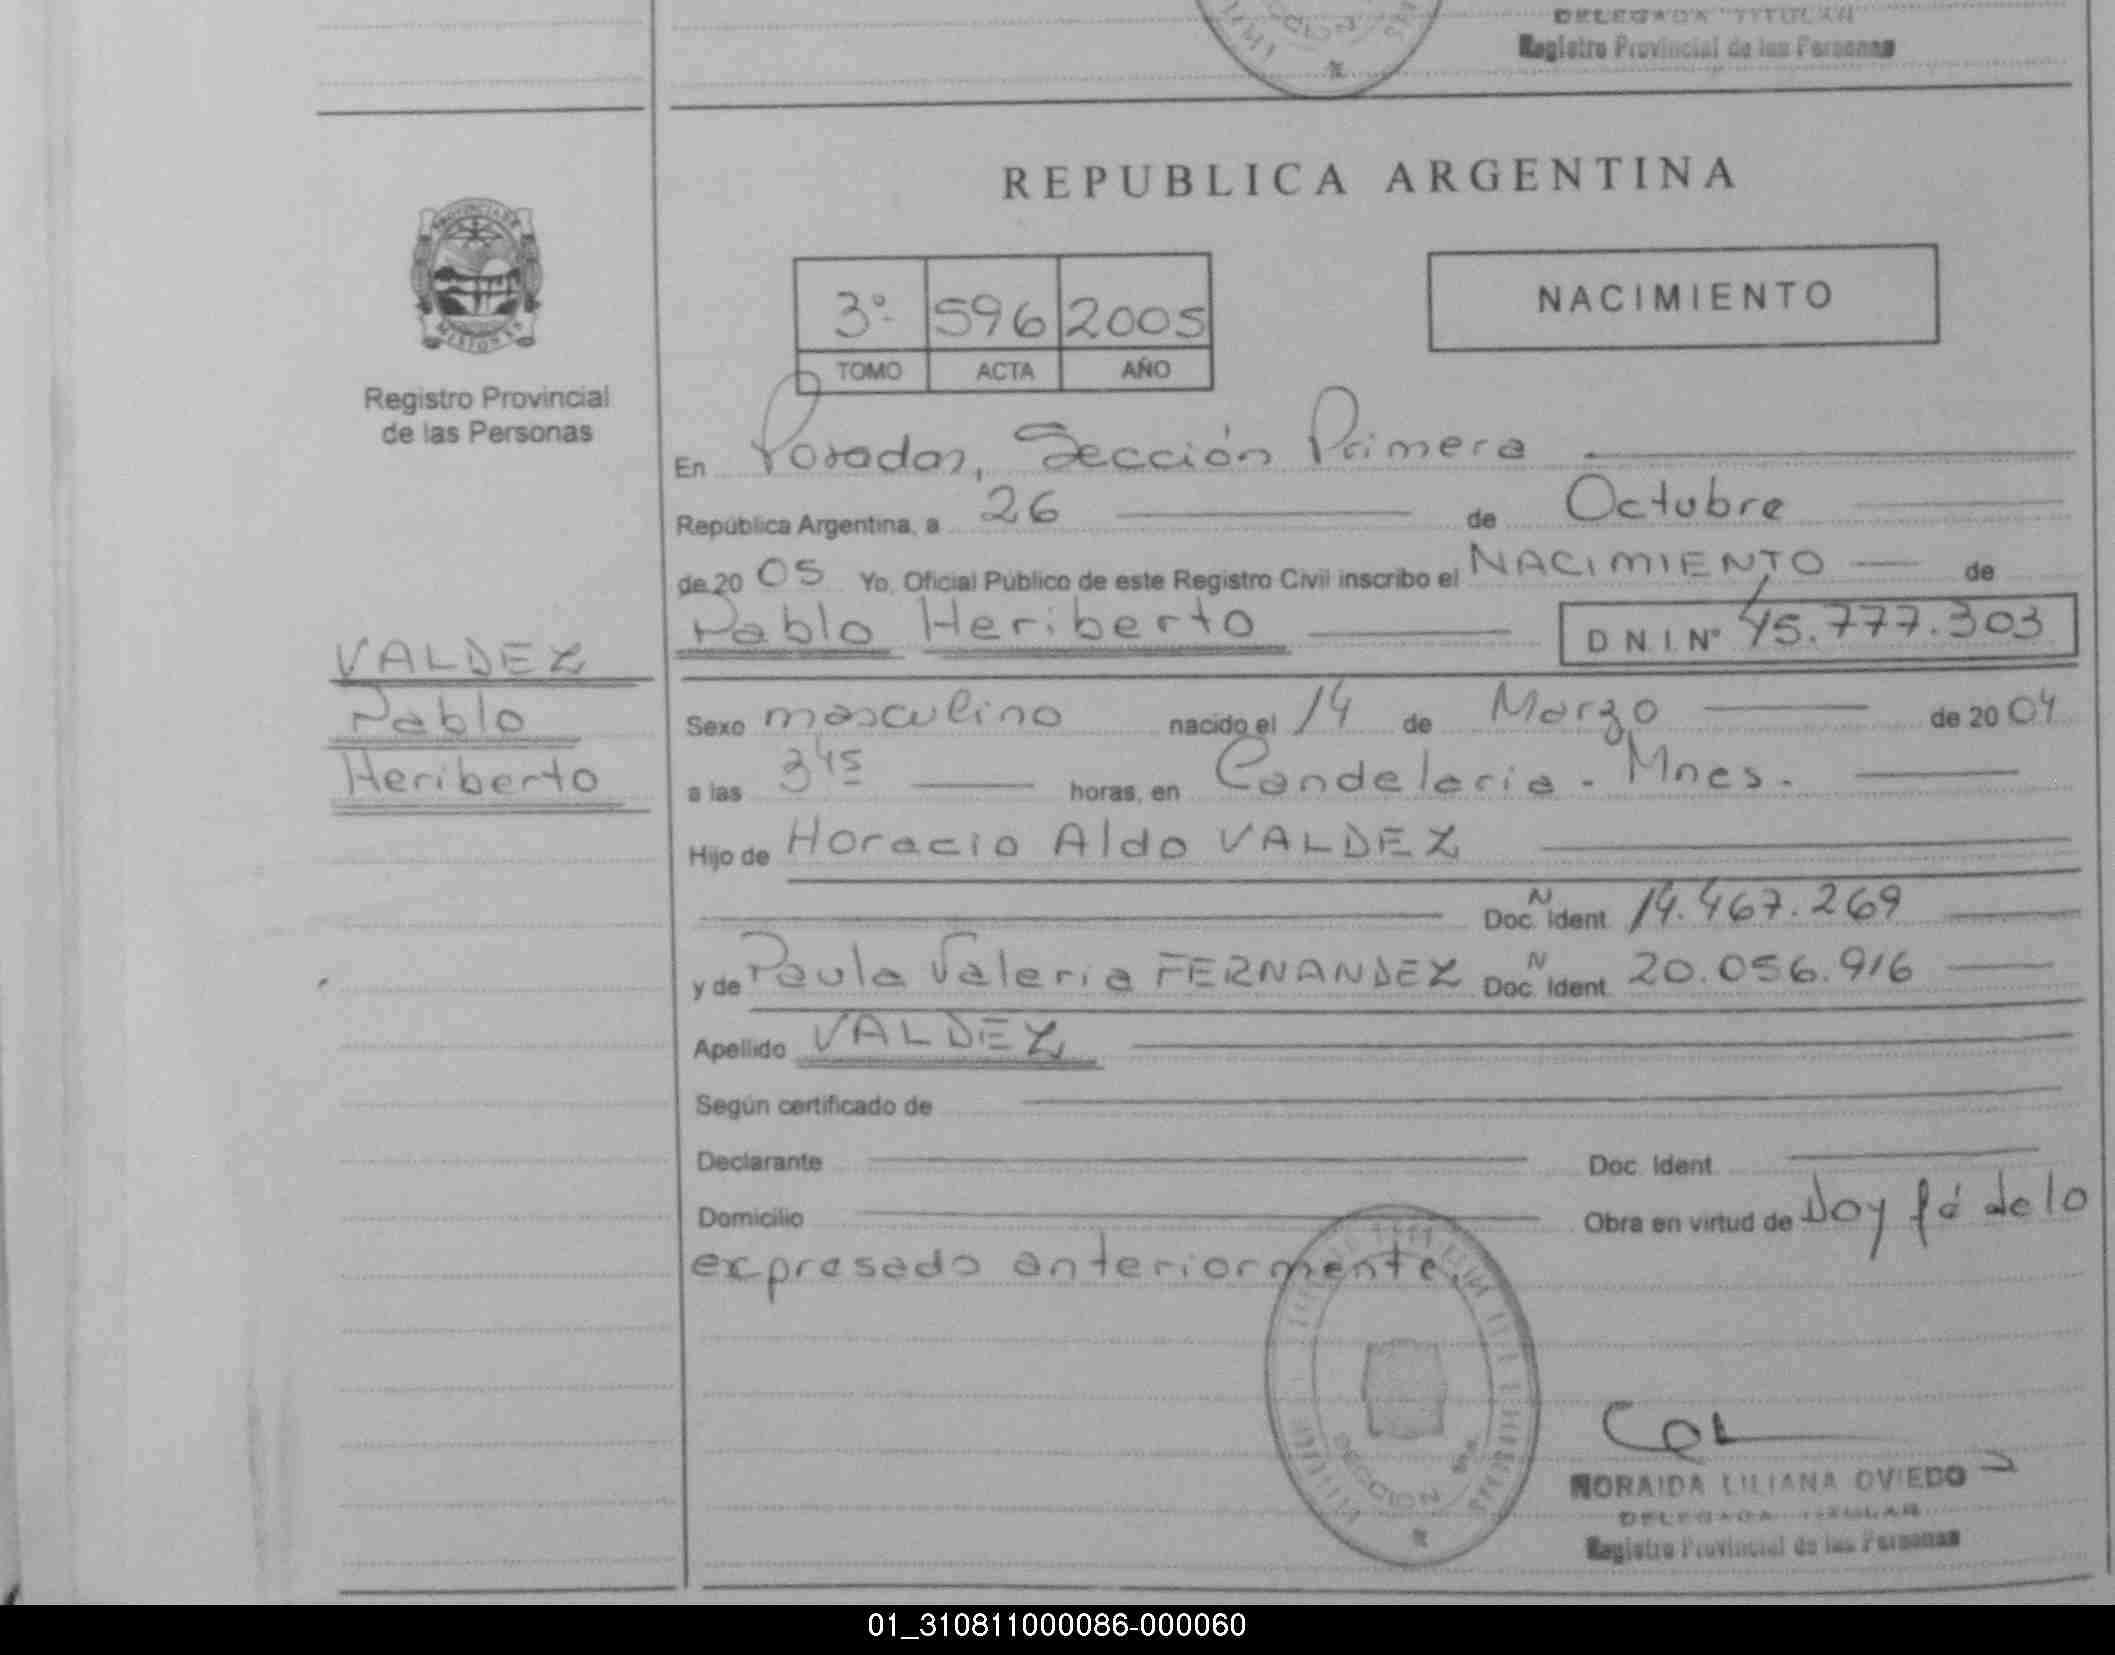 DELEGADA TITULAR
Registro Provincial de las Personas
REPUBLICA ARGENTINA
PROVINCIA DE
MISIONES
Registro Provincial
de las Personas
3º 596 2005
TOMO ACTA AÑO
NACIMIENTO
En Posadas, Sección Primera
República Argentina, a 26 de Octubre
de 20 05 Yo, Oficial Público de este Registro Civil inscribo el NACIMIENTO de
Pablo Heriberto D N. I. Nº 45.777.303
VALDEZ
Pablo
Heriberto
Sexo masculino nacido el 14 de Marzo de 20 04
a las 3 45 horas, en Candelaria - Mnes.
Hijo de Horacio Aldo VALDEZ
Doc. Ident. N 14.467.269
y de Paula Valeria FERNANDEZ Doc. Ident. N 20.056.916
Apellido VALDEZ
Según certificado de
Declarante Doc. Ident.
Domicilio Obra en virtud de Doy fé de lo
expresado anteriormente.
SECCION
NORAIDA LILIANA OVIEDO
DELEGADA TITULAR
Registro Provincial de las Personas
01_310811000086-000060